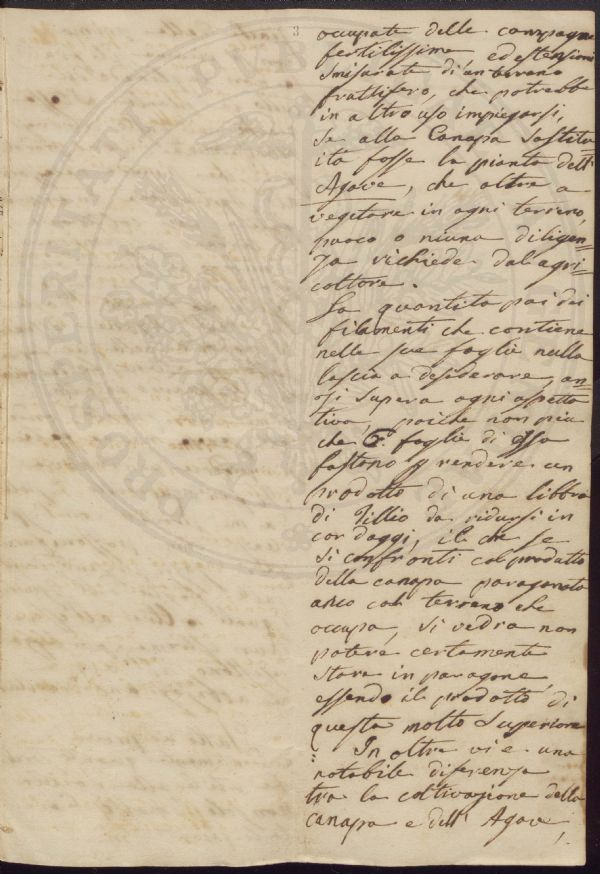 3
occupate delle campagne
fertilissime ed estensioni
smisurate di un terreno
fruttifero, che potrebbe
in altro uso impiegarsi,
se alla Canapa sostitu
ita fosse la pianta dell'
Agave, che oltre a
vegitare in ogni terreno,
puoco o niuna diligen=
za richiede dal agri=
coltore.
La quantita poi dei
filamenti che contiene
nelle sue foglie nulla
lascia a desiderare, an=
zi supera ogni aspetta
tiva, poiche non piu
che 6. foglie di essa
bastono p rendere un
prodotto di una libbra
di Tillio da ridursi in
cordaggi, il che se
si confronti col prodotto
della canapa paragonato
anco col terreno che
occupa, si vedra non
potere certamente
stare in paragone,
essendo il prodotto di
questa molto superiore
In oltre vi e una
notabile diferenza
tra la coltivazione della
canapa e dell' Agave,